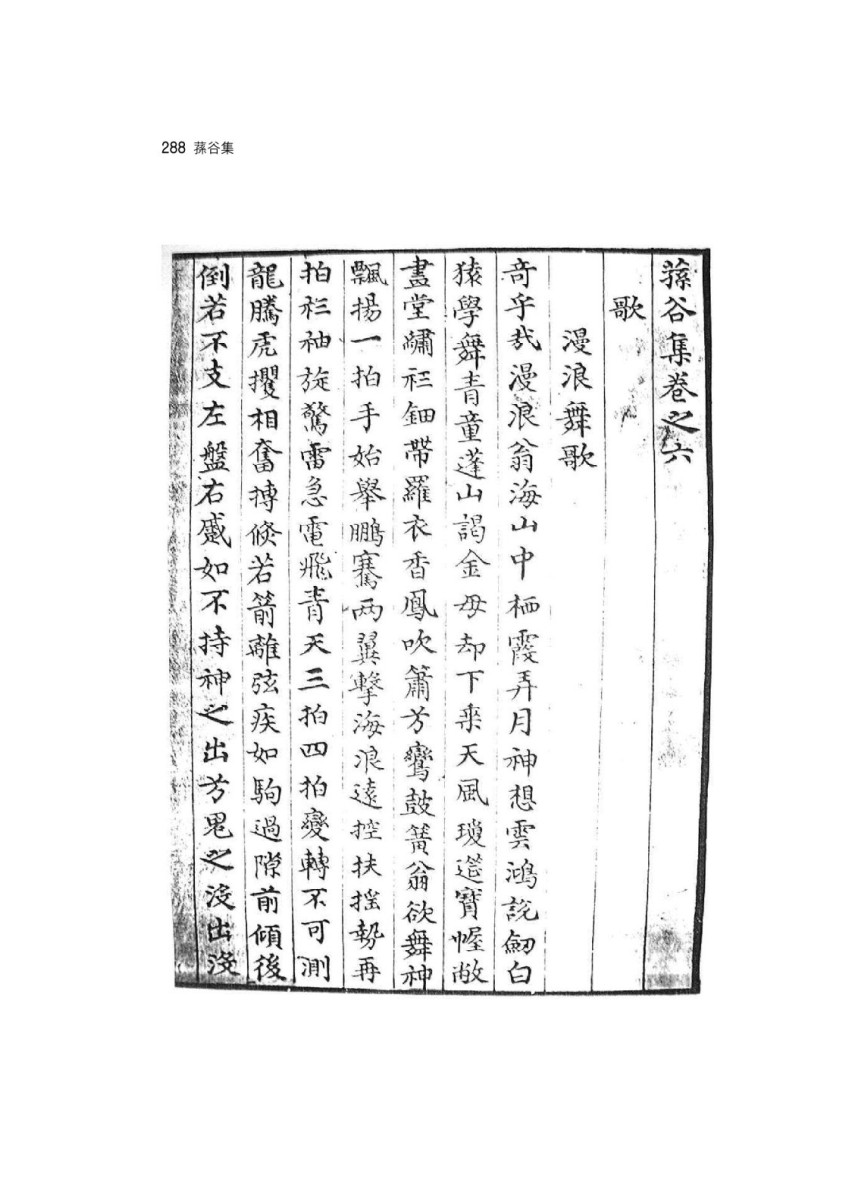 288 蓀谷集
蓀谷集卷之六
歌
漫浪舞歌
奇乎㢤漫浪翁海山中栖霞弄月神想雲鴻說劒白
猿學舞青童蓬山謁金母却下来天風瓊筵寶幄敞
畫堂繡衫鈿帶羅衣香鳳吹簫兮鸞鼓簧翁欲舞神
飄揚一拍手始舉鵬騫两翼擊海浪遠控扶揺勢再
拍衫袖旋驚雷急電飛青天三拍四拍變轉不可測
龍騰虎攫相奮搏倐若箭離弦疾如駒過隙前傾後
倒若不支左盤右蹙如不持神之出兮鬼之沒出沒